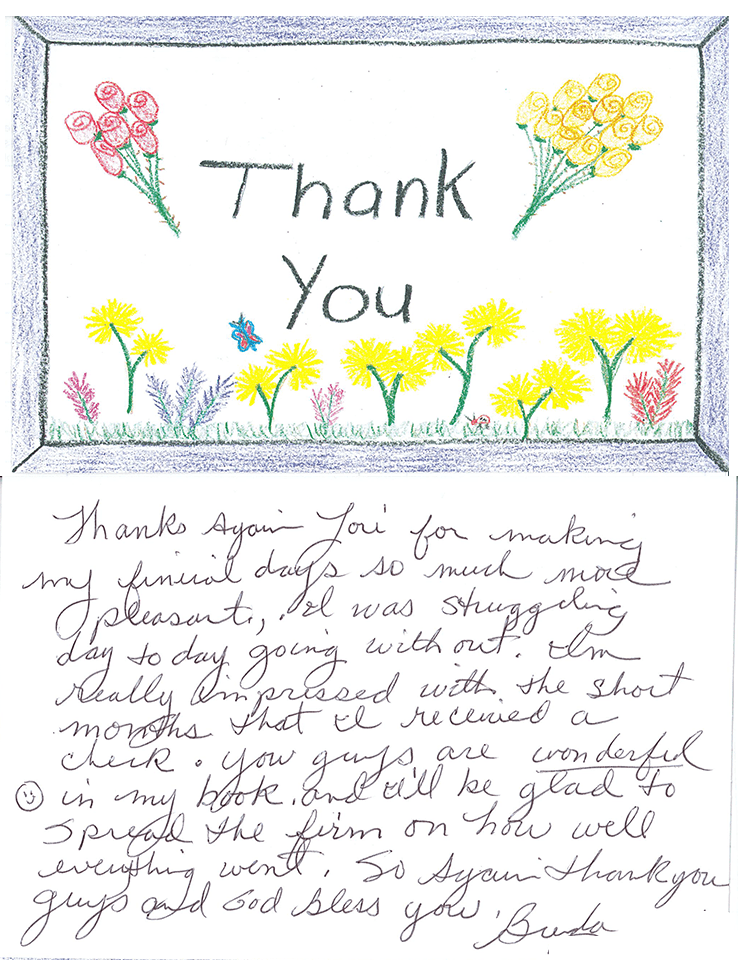 Thank
You
Thanks Again Lori for making
my finicial days so much more
pleasant., . I was struggling
day to day going without. I'm
really impressed with the short
months that I received a
check. You guys are wonderful
in my book. and I'll be glad to
spread the firm on how well
everything went. So Again thank you
guys and God Bless you,
Brenda